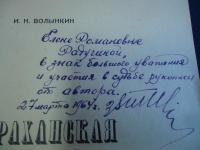 И. Н. ВОЛЫНКИН
Елене Романовне
Радугиной,
в знак большого уважения
и участия в судьбе рукописи
от автора.
27 марта 1964 г.
РАХАНСКАЯ